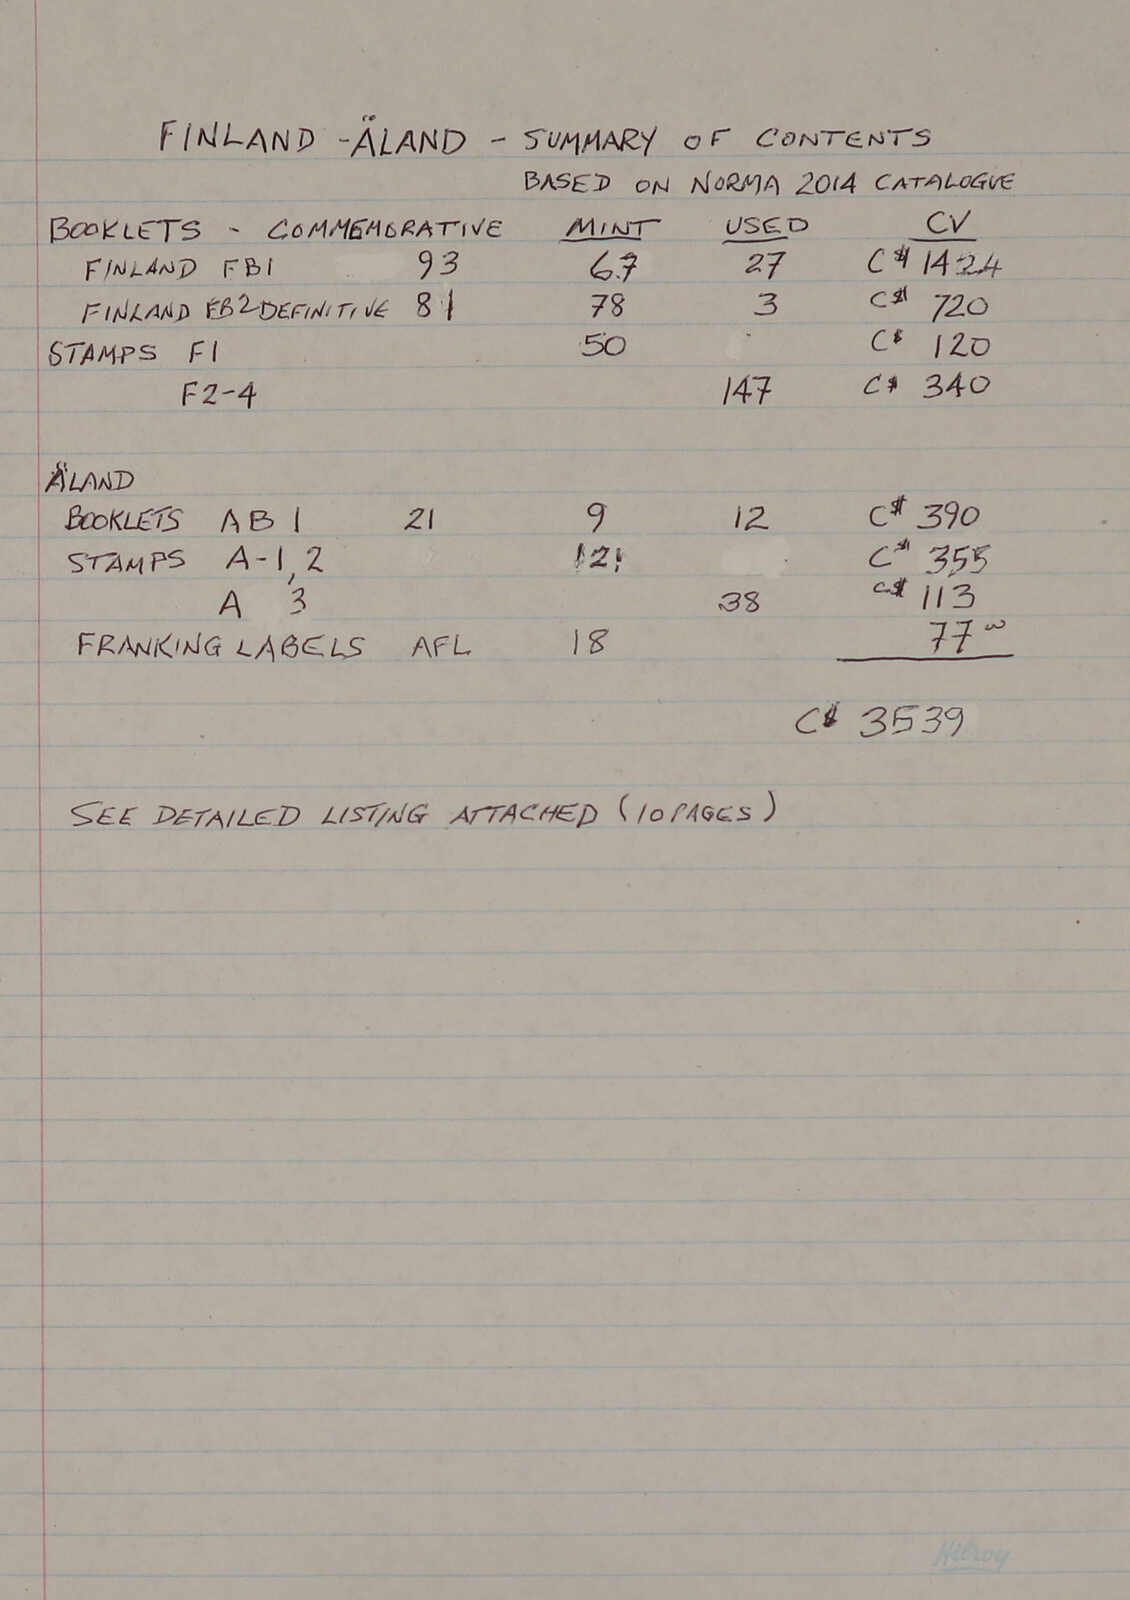 FINLAND - ÄLAND - SUMMARY OF CONTENTS
BASED ON NORMA 2014 CATALOGUE
BOOKLETS - COMMEMORATIVE MINT USED CV
FINLAND FB1 93 67 27 C$ 1424
FINLAND FB2 DEFINITIVE 81 78 3 C$ 720
STAMPS F1 50 C$ 120
F2-4 147 C$ 340
ÄLAND
BOOKLETS AB 1 21 9 12 C$ 390
STAMPS A-1, 2 121 C$ 355
A 3 38 C$ 113
FRANKING LABELS AFL 18 77 00
C$ 3539
SEE DETAILED LISTING ATTACHED (10 PAGES)
Hilroy